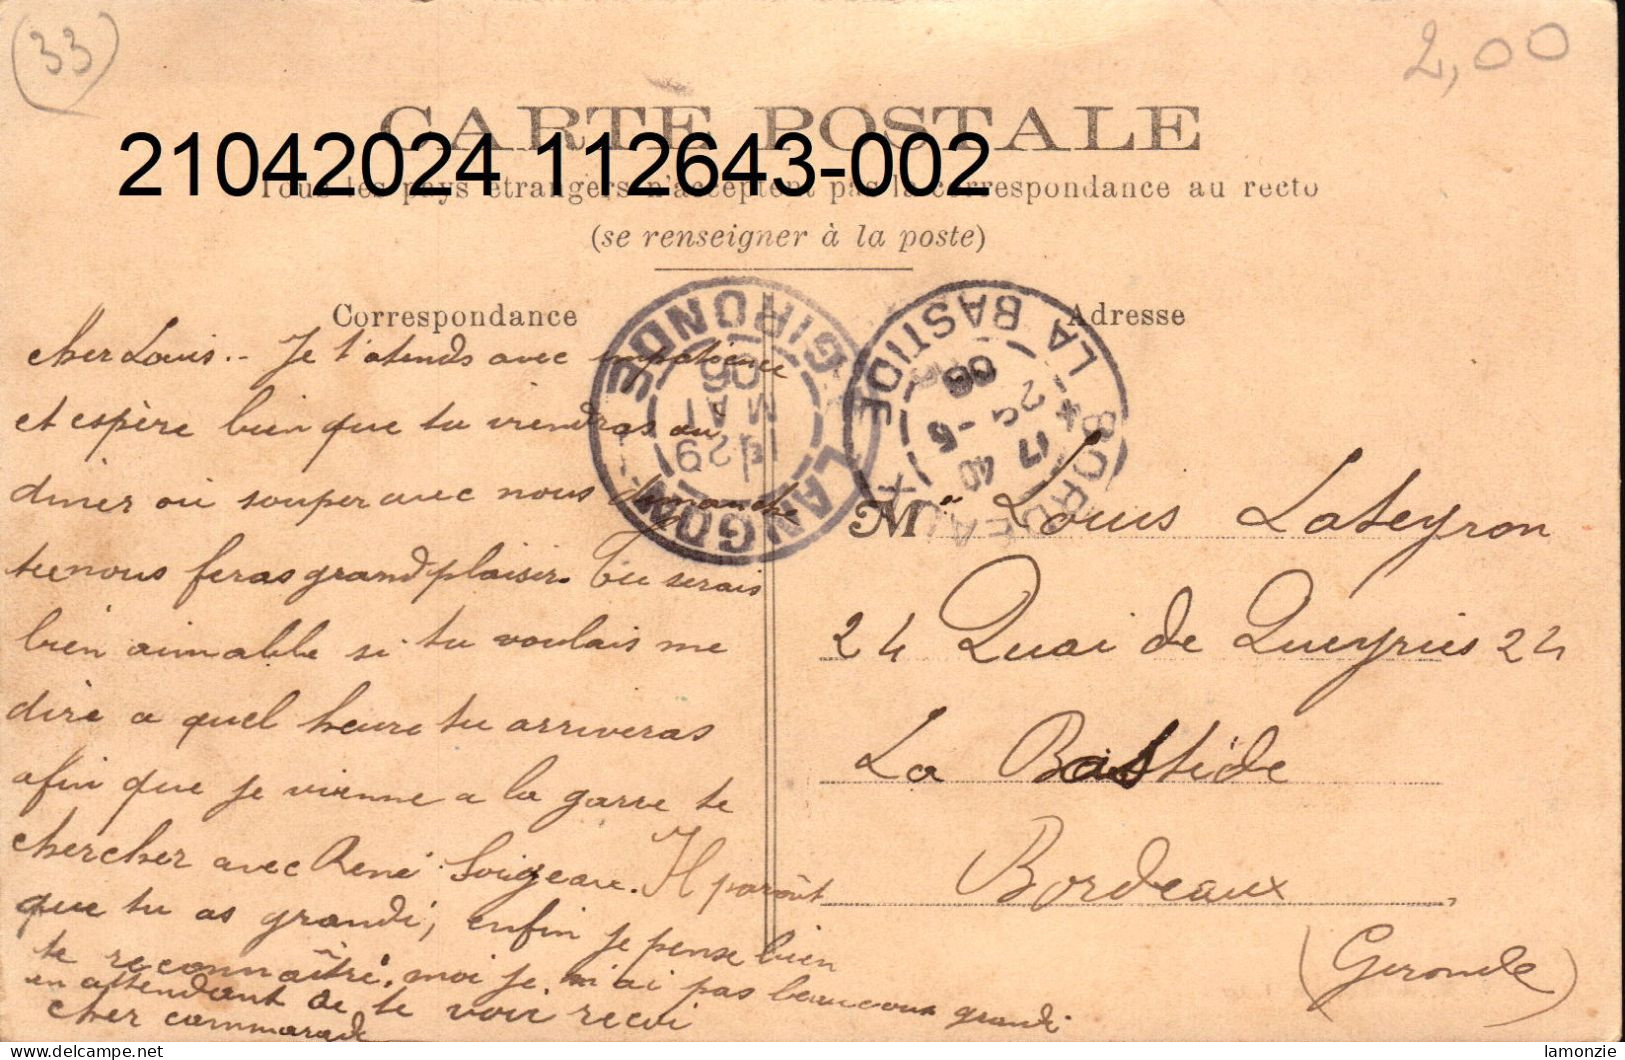 33
2,00
CARTE POSTALE
21042024 112643-002
Tous les pays étrangers n'acceptent pas la correspondance au recto
(se renseigner à la poste)
Correspondance
Adresse
LANGON GIRONDE
29
MAI
06
BORDEAUX LA BASTIDE
17 40
29 -5
06
cher Louis.- Je t'atends avec impatience
et espère bien que tu viendras au
diner ou souper avec nous dimanche
tu nous feras grand plaisir. Tu serais
bien aimable si tu voulais me
dire a quel heure tu arriveras
afin que je vienne a la garre te
chercher avec René. Il paroît
que tu as grandi, enfin je pense bien
te reconnaître. moi je n'ai pas beaucoup grandi
en attendant de te voir reçoi
cher cammarade
Mr Louis Lateyron
24 Quai de Queyries 24
La Bastide
Bordeaux
(Gironde)
lamonzie
delcampe.net